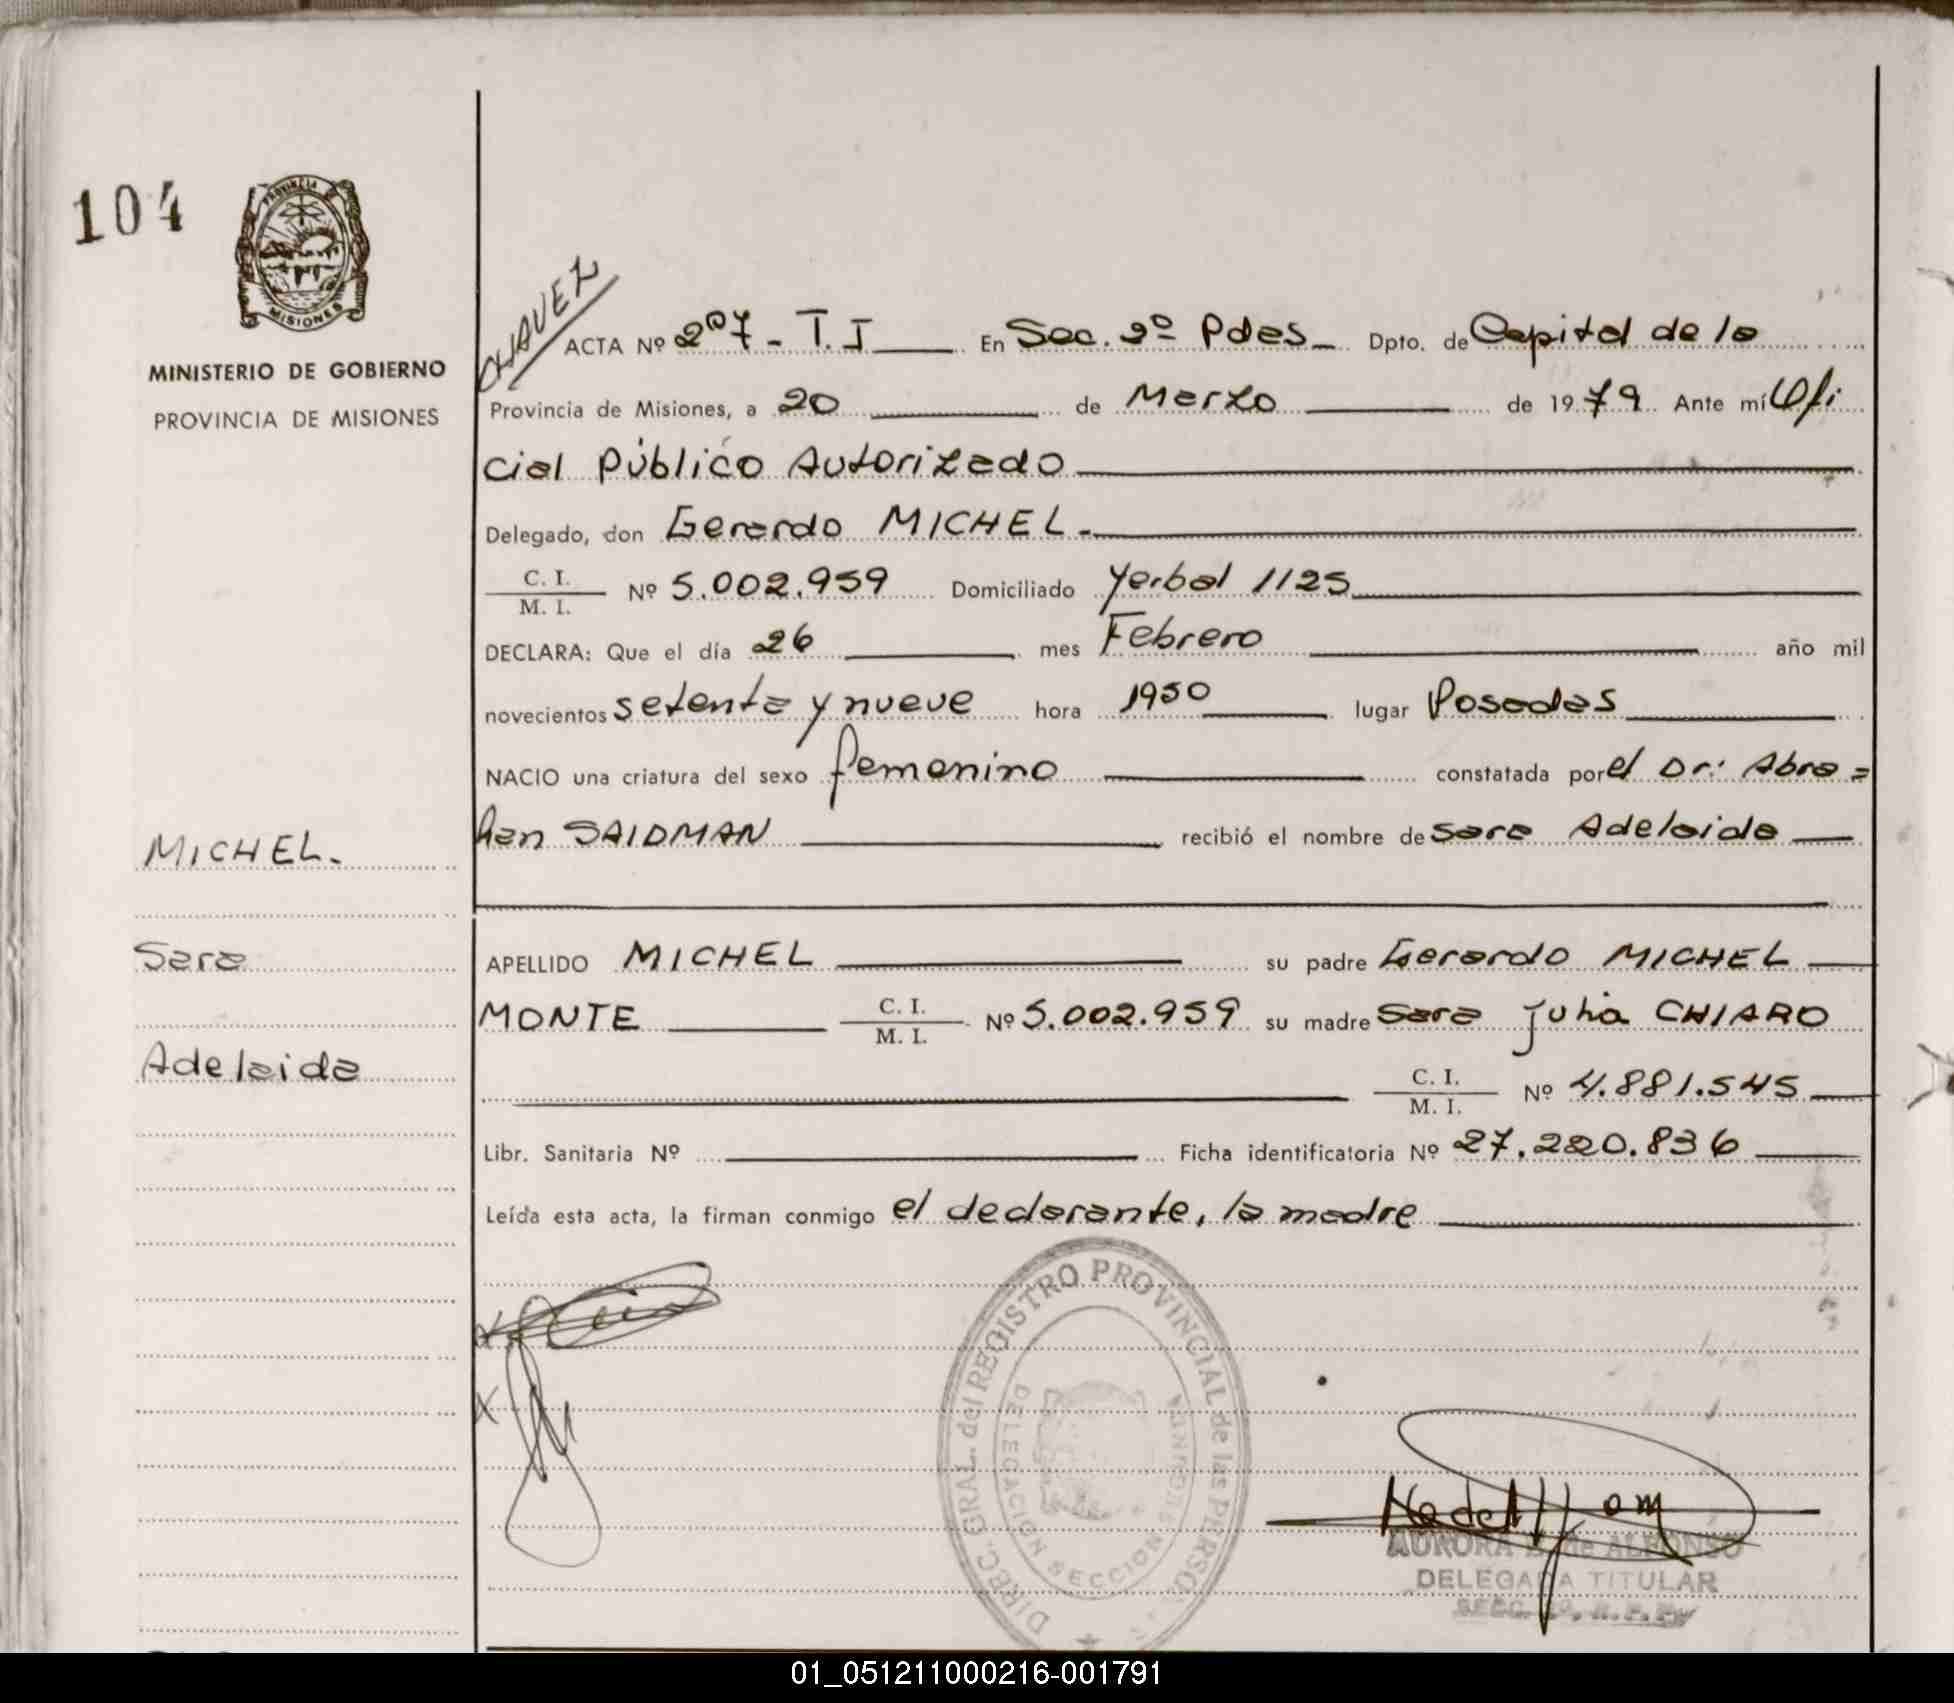 104
PROVINCIA
MISIONES
MINISTERIO DE GOBIERNO
PROVINCIA DE MISIONES
MICHEL.
Sara
Adelaida
CHAVEZ
ACTA Nº 207 - T. I En Sec. 2º Pdas Dpto. de Capital de la
Provincia de Misiones, a 20 de Marzo de 1979 Ante mí Ofi
cial Público Autorizado
Delegado, don Gerardo MICHEL.
C. I.
M. I. Nº 5.002.959 Domiciliado Yerbal 1125
DECLARA: Que el día 26 mes Febrero año mil
novecientos setenta y nueve hora 1950 lugar Posadas
NACIO una criatura del sexo femenino constatada por el Dr: Abra=
han SAIDMAN recibió el nombre de Sara Adelaida
APELLIDO MICHEL su padre Gerardo MICHEL
MONTE C. I.
M. I. Nº 5.002.959 su madre Sara Julia CHIARO
C. I.
M. I. Nº 4.881.545
Libr. Sanitaria Nº Ficha identificatoria Nº 27.220.836
Leída esta acta, la firman conmigo el declarante, la madre
DIREC. GRAL. del REGISTRO PROVINCIAL de las PERSO
DELEGACION SECCION
AURORA de ALFONSO
DELEGADA TITULAR
SECC. 2º, R.P.P.
01_051211000216-001791